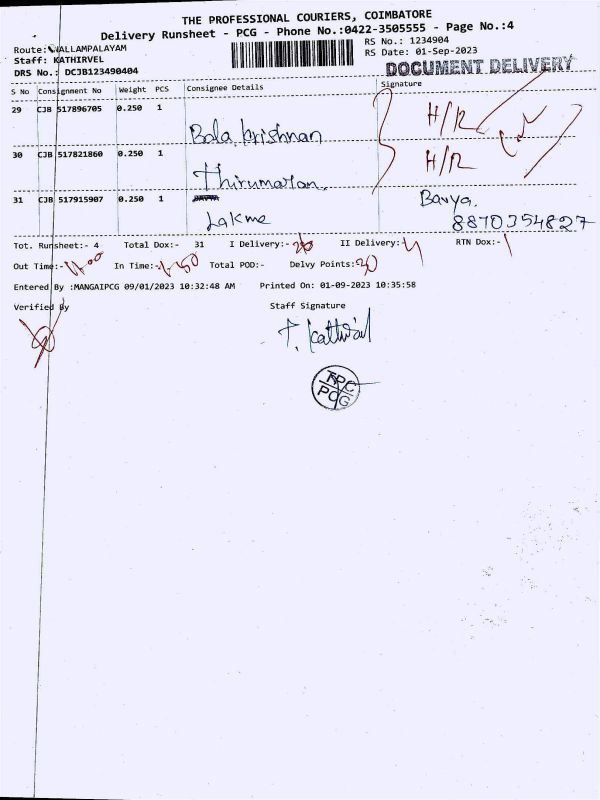 THE PROFESSIONAL COURIERS, COIMBATORE
Delivery Runsheet - PCG - Phone No.:0422-3505555 - Page No.:4
Route: VALLAMPALAYAM
RS No.: 1234904
Staff: KATHIRVEL
RS Date: 01-Sep-2023
DRS No.: DCJB123490404
DOCUMENT DELIVERY
S No Consignment No Weight PCS Consignee Details Signature
29 CJB 517896705 0.250 1
Bala krishnan H/R
30 CJB 517821860 0.250 1
Thirumaran. H/R
31 CJB 517915907 0.250 1
Lakme Bavya.
8870354827
Tot. Runsheet:- 4 Total Dox:- 31 I Delivery:- II Delivery:- 4 RTN Dox:- 1
Out Time:- 11.00 In Time:- Total POD:- Delvy Points: 30
Entered By :MANGAIPCG 09/01/2023 10:32:48 AM Printed On: 01-09-2023 10:35:58
Verified By Staff Signature
TPC
PCG